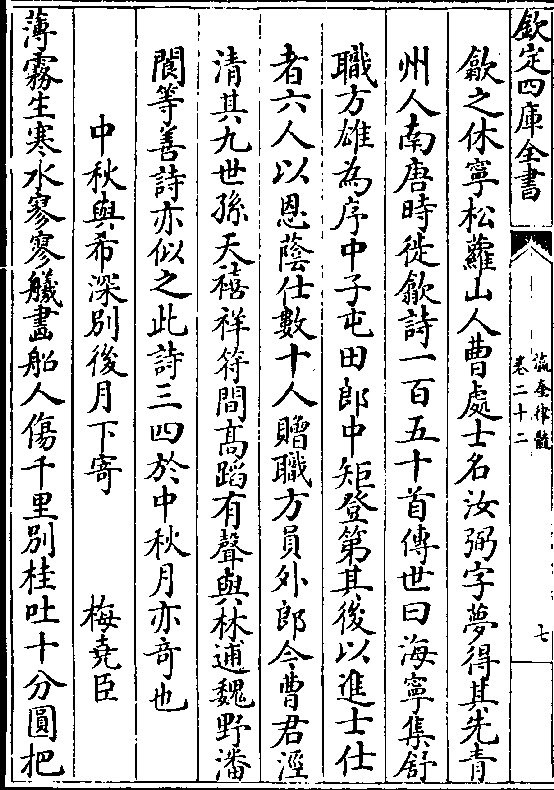 欽定四庫全書
瀛奎律髓
卷二十二
七
歙之休寧松蘿山人曹處士名汝弼字夢得其先青
州人南唐時徙歙詩一百五十首傳世曰海寧集舒
職方雄為序中子屯田郎中矩登第其後以進士仕
者六人以恩蔭仕數十人贈職方員外郎今曹君涇
清其九世孫天禧祥符間髙蹈有聲與林逋魏野潘
閬等善詩亦似之此詩三四於中秋月亦竒也
中秋與希深別後月下寄　梅堯臣
薄霧生寒水寥寥艤畫船人傷千里別桂吐十分圓把